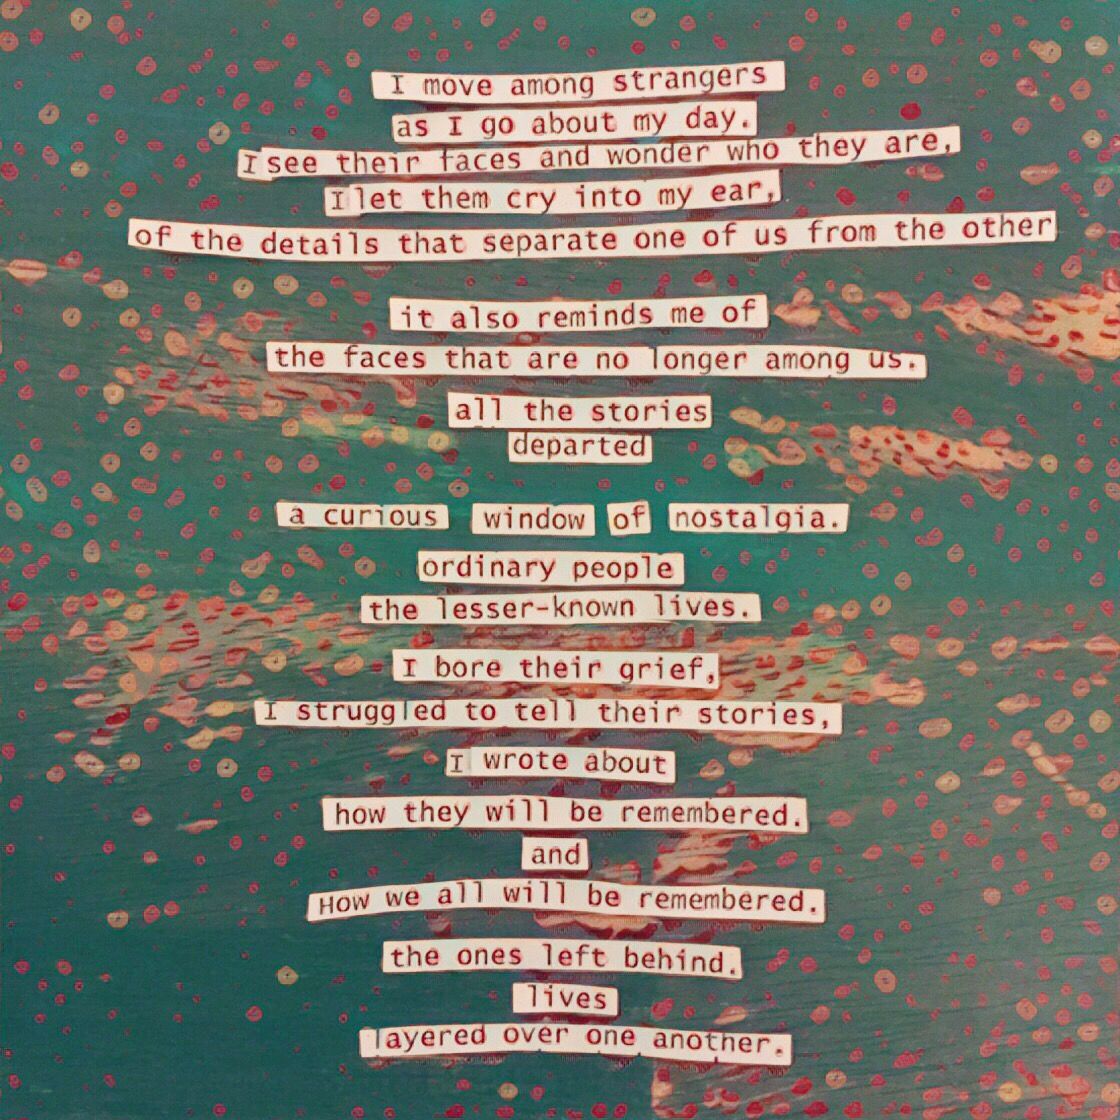 I move among strangers
as I go about my day.
I see their faces and wonder who they are,
I let them cry into my ear,
of the details that separate one of us from the other
it also reminds me of
the faces that are no longer among us.
all the stories
departed
a curious window of nostalgia.
ordinary people
the lesser-known lives.
I bore their grief,
I struggled to tell their stories,
I wrote about
how they will be remembered.
and
How we all will be remembered.
the ones left behind.
lives
layered over one another.